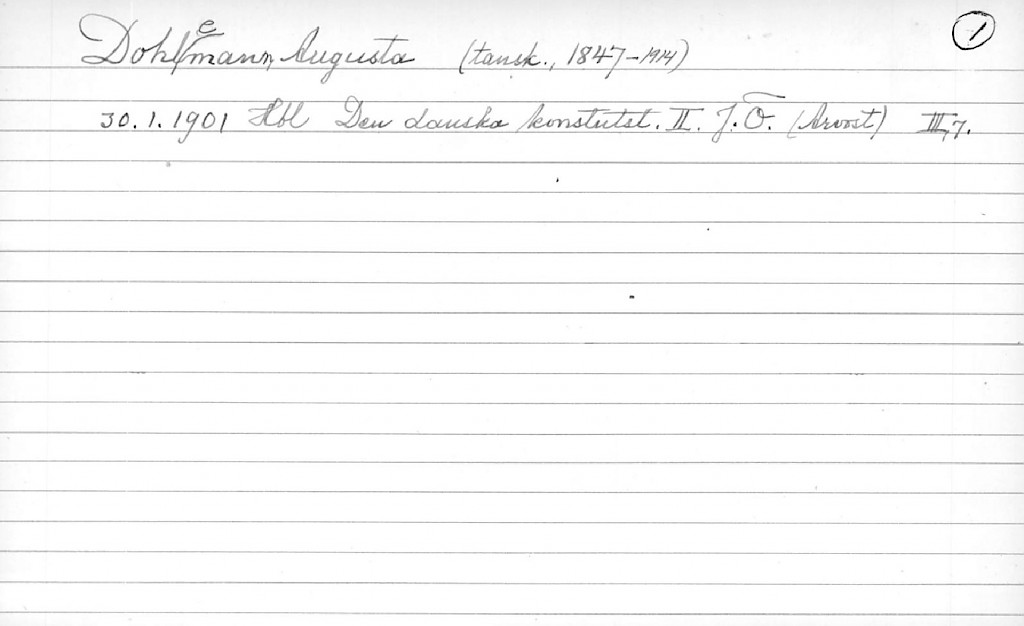 Dohlemann, Augusta (tansk., 1847-1914) 1
30.1.1901 Hbl Den danska konstutst. II. J.Ö. (Arvost) III,7.